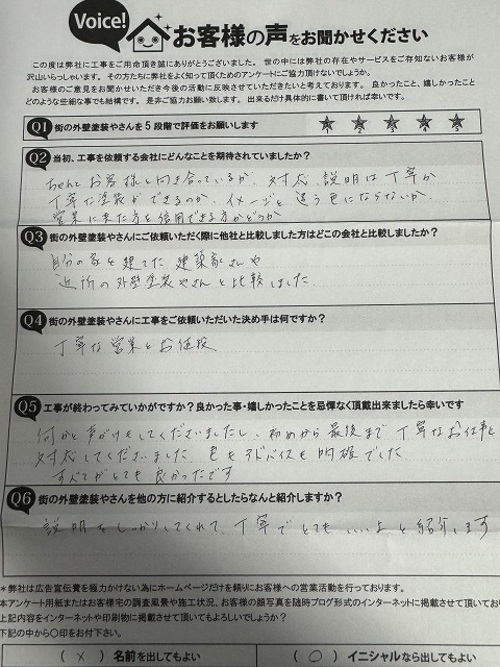 Voice!
お客様の声をお聞かせください
この度は弊社に工事をご用命頂き誠にありがとうございました。世の中には弊社の存在やサービスをご存知ないお客様が
沢山いらっしゃいます。その方たちに弊社をよく知って頂くためのアンケートにご協力頂けないでしょうか。
お客様のご意見をお聞かせいただき今後の活動に反映させていただきたいと考えております。良かったこと、嬉しかったこと
どのような些細な事でも結構です。是非ご協力お願い致します。出来るだけ具体的に書いて頂ければ幸いです。
Q1 街の外壁塗装やさんを5段階で評価をお願いします ★1 ★2 ★3 ★4 ★5
Q2 当初、工事を依頼する会社にどんなことを期待されていましたか?
ちゃんとお客様と向き合っているか、対応、説明は丁寧か
丁寧な塗装ができるのか、イメージと違う色にならないか、
営業に来た方を信用できる方かどうか
Q3 街の外壁塗装やさんにご依頼いただく際に他社と比較しました方はどこの会社と比較しましたか?
自分の家を建てた建築家さんや
近所の外壁塗装やさんと比較しました
Q4 街の外壁塗装やさんに工事をご依頼いただいた決め手は何ですか?
丁寧な営業とお値段
Q5 工事が終わってみていかがですか?良かった事・嬉しかったことを忌憚なく頂戴出来ましたら幸いです
何かと声がけをしてくださいましたし、初めから最後まで丁寧なお仕事と
対応してくださいました 色もアドバイスも的確でした
すべてがとても良かったです
Q6 街の外壁塗装やさんを他の方に紹介するとしたらなんと紹介しますか?
説明をしっかりしてくれて、丁寧でとてもいいよと紹介します
*弊社は広告宣伝費を極力かけない為にホームページだけを頼りにお客様への営業活動を行っております。
本アンケート用紙またはお客様宅の調査風景や施工状況、お客様の顔写真を随時ブログ形式のインターネットに掲載させて頂いてお
上記内容をインターネットや印刷物に掲載させて頂いてもよろしいでしょうか?
下記の中から〇印をお付下さい。
(×)名前を出してもよい (○)イニシャルなら出してもよい